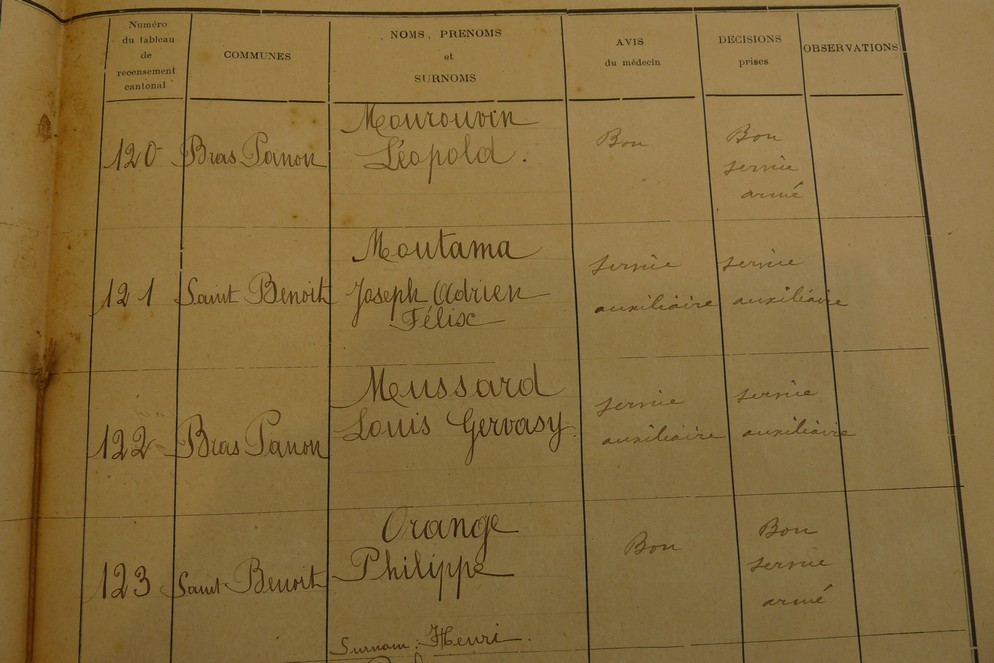 Numéro
du tableau
de
recensement
cantonal
COMMUNES
NOMS, PRENOMS
et
SURNOMS
AVIS
du médecin
DECISIONS
prises
OBSERVATIONS
120 Bras Panon
Mourouvin
Léopold.
Bon
Bon
servie
armé
121 Saint Benoit
Moutama
Joseph Adrien
Félix
servie
auxiliaire
servie
auxiliaire
122 Bras Panon
Mussard
Louis Gervasy
servie
auxiliaire
servie
auxiliaire
123 Saint-Benoit
Orange
Philippe
Surnom: Henri.
Bon
Bon
servie
armé